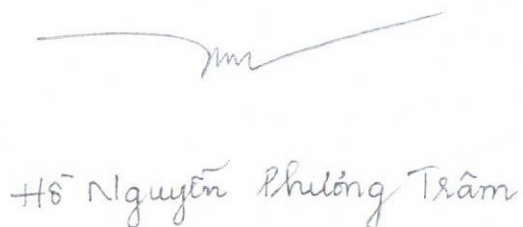 Hồ Nguyễn Phương Trâm